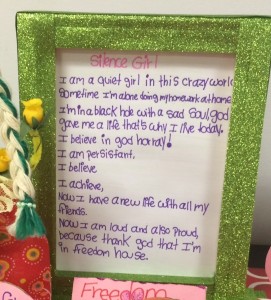 Silence Girl
I am a quiet girl in this crazy world
Sometime I'm alone doing my homework at home.
I'm in a black hole with a sad soul, god
gave me a life that's why I live today.
I believe in god horray!
I am persistant.
I believe
I achieve,
Now I have a new life with all my
friends.
Now I am loud and also proud,
because thank god that I'm
in Freedom house.
Freedom